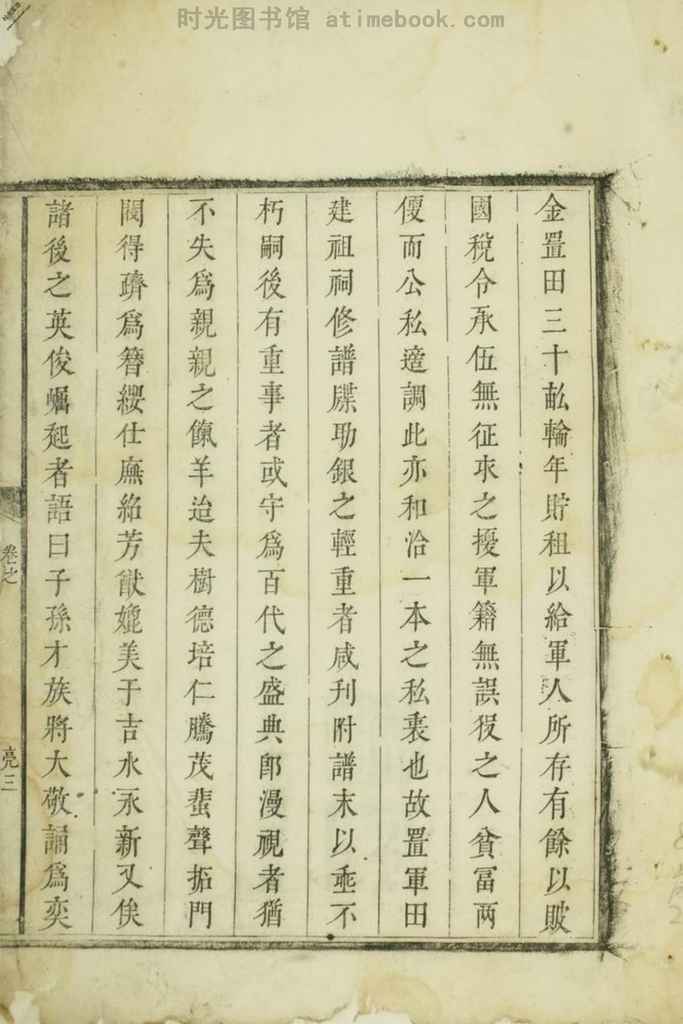 时光图书馆 atimebook.com
金置田三十畝輪年貯租以給軍人所存有餘以貱
國稅令承伍無征求之擾軍籍無誤役之人貧冨两
偄而公私適調此亦和洽一本之私衷也故置軍田
建祖祠修譜牒助銀之輕重者咸刊附譜末以埀不
朽嗣後有重事者或守爲百代之盛典卽漫視者猶
不失爲親親之餼羊迨夫樹德培仁騰茂蜚聲拓門
閥得躋爲簪纓仕廡紹芳猷媲美于吉水永新又俟
諸後之英俊崛起者語曰子孫才族將大敬誦爲奕
卷之
亮三